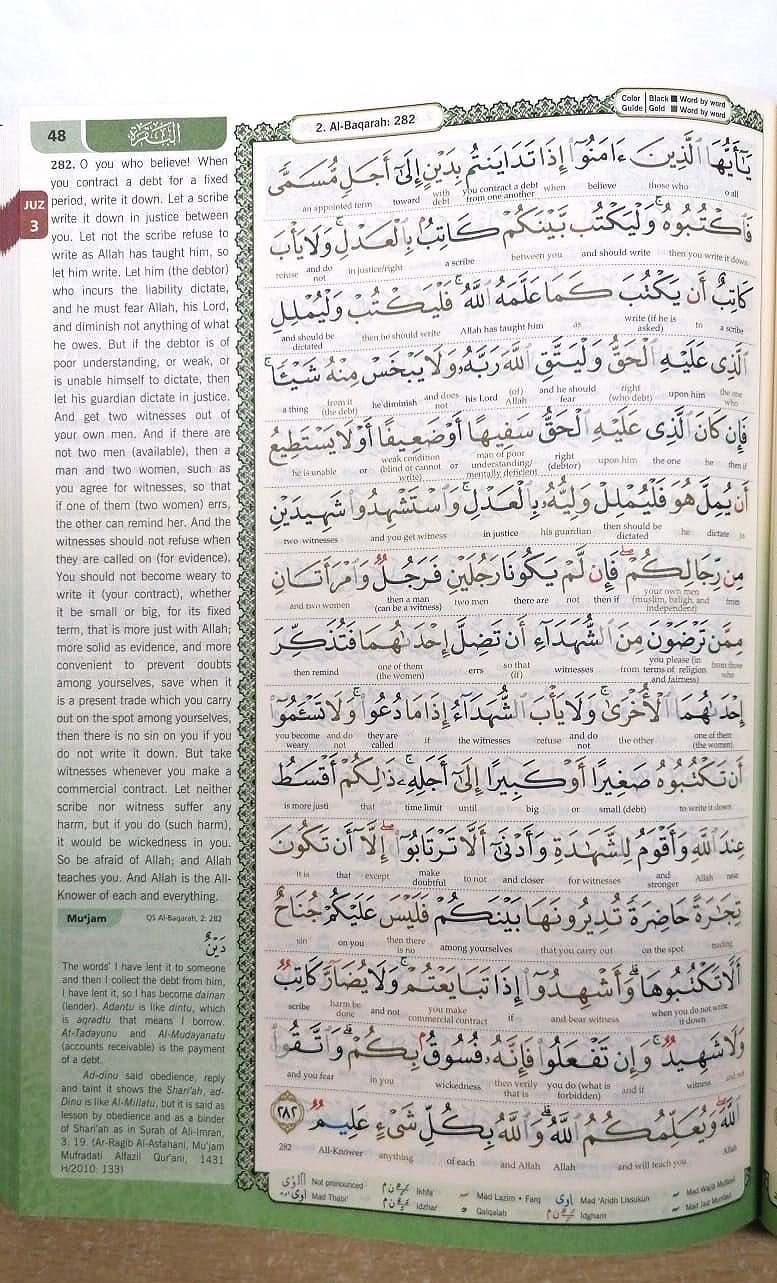 48
البقرة
2. Al-Baqarah: 282
Color Guide
Black ■ Word by word
Gold ■ Word by word
JUZ
3
282. O you who believe! When
you contract a debt for a fixed
period, write it down. Let a scribe
write it down in justice between
you. Let not the scribe refuse to
write as Allah has taught him, so
let him write. Let him (the debtor)
who incurs the liability dictate,
and he must fear Allah, his Lord,
and diminish not anything of what
he owes. But if the debtor is of
poor understanding, or weak, or
is unable himself to dictate, then
let his guardian dictate in justice.
And get two witnesses out of
your own men. And if there are
not two men (available), then a
man and two women, such as
you agree for witnesses, so that
if one of them (two women) errs,
the other can remind her. And the
witnesses should not refuse when
they are called on (for evidence).
You should not become weary to
write it (your contract), whether
it be small or big, for its fixed
term, that is more just with Allah;
more solid as evidence, and more
convenient to prevent doubts
among yourselves, save when it
is a present trade which you carry
out on the spot among yourselves,
then there is no sin on you if you
do not write it down. But take
witnesses whenever you make a
commercial contract. Let neither
scribe nor witness suffer any
harm, but if you do (such harm),
it would be wickedness in you.
So be afraid of Allah; and Allah
teaches you. And Allah is the All-
Knower of each and everything.
Mu'jam
QS Al-Baqarah, 2: 282
دَيْنٌ
The words' I have lent it to someone
and then I collect the debt from him,
I have lent it, so I has become dainan
(lender). Adantu is like dintu, which
is aqradtu that means I borrow.
At-Tadayunu and Al-Mudayanatu
(accounts receivable) is the payment
of a debt.
Ad-dinu said obedience, reply
and taint it shows the Shari'ah, ad-
Dinu is like Al-Millatu, but it is said as
lesson by obedience and as a binder
of Shari'ah as in Surah of Ali-Imran,
3: 19. (Ar-Ragib Al-Asfahani, Mu'jam
Mufradati Alfazil Qur'ani, 1431
H/2010: 133)
يَٰٓأَيُّهَا ٱلَّذِينَ ءَامَنُوٓا۟ إِذَا تَدَايَنتُم بِدَيْنٍ إِلَىٰٓ أَجَلٍ مُّسَمًّى
an appointed term toward with debt you contract a debt from one another when believe those who o all
فَٱكْتُبُوهُ ۚ وَلْيَكْتُب بَّيْنَكُمْ كَاتِبٌۢ بِٱلْعَدْلِ ۚ وَلَا يَأْبَ
refuse and do not in justice/right a scribe between you and should write then you write it down
كَاتِبٌ أَن يَكْتُبَ كَمَا عَلَّمَهُ ٱللَّهُ ۚ فَلْيَكْتُبْ وَلْيُمْلِلِ
and should be dictated then he should write Allah has taught him as write (if he is asked) to a scribe
ٱلَّذِى عَلَيْهِ ٱلْحَقُّ وَلْيَتَّقِ ٱللَّهَ رَبَّهُۥ وَلَا يَبْخَسْ مِنْهُ شَيْـًٔا ۚ
a thing from it (the debt) he diminish and does not his Lord (of) Allah and he should fear right (who debt) upon him the one who
فَإِن كَانَ ٱلَّذِى عَلَيْهِ ٱلْحَقُّ سَفِيهًا أَوْ ضَعِيفًا أَوْ لَا يَسْتَطِيعُ
he is unable or weak condition (blind or cannot write) or man of poor understanding/ mentally deficient right (debtor) upon him the one be then if
أَن يُمِلَّ هُوَ فَلْيُمْلِلْ وَلِيُّهُۥ بِٱلْعَدْلِ ۚ وَٱسْتَشْهِدُوا۟ شَهِيدَيْنِ
two witnesses and you get witness in justice his guardian then should be dictated he dictate
مِن رِّجَالِكُمْ ۖ فَإِن لَّمْ يَكُونَا رَجُلَيْنِ فَرَجُلٌ وَٱمْرَأَتَانِ
and two women then a man (can be a witness) two men there are not then if your own men (muslim, baligh, and independent) from
مِمَّن تَرْضَوْنَ مِنَ ٱلشُّهَدَآءِ أَن تَضِلَّ إِحْدَىٰهُمَا فَتُذَكِّرَ
then remind one of them (the women) errs so that (if) witnesses from you please (in terms of religion and fairness) from those who
إِحْدَىٰهُمَا ٱلْأُخْرَىٰ ۚ وَلَا يَأْبَ ٱلشُّهَدَآءُ إِذَا مَا دُعُوا۟ ۚ وَلَا تَسْـَٔمُوٓا۟
you become weary and do not they are called if the witnesses refuse and do not the other one of them (the women)
أَن تَكْتُبُوهُ صَغِيرًا أَوْ كَبِيرًا إِلَىٰٓ أَجَلِهِۦ ۚ ذَٰلِكُمْ أَقْسَطُ
is more justi that time limit until big or small (debt) to write it down
عِندَ ٱللَّهِ وَأَقْوَمُ لِلشَّهَٰدَةِ وَأَدْنَىٰٓ أَلَّا تَرْتَابُوٓا۟ ۖ إِلَّآ أَن تَكُونَ
it is that except make doubtful to not and closer for witnesses and stronger Allah near
تِجَٰرَةً حَاضِرَةً تُدِيرُونَهَا بَيْنَكُمْ فَلَيْسَ عَلَيْكُمْ جُنَاحٌ
sin on you then there is no among yourselves that you carry out on the spot trading
أَلَّا تَكْتُبُوهَا ۗ وَأَشْهِدُوٓا۟ إِذَا تَبَايَعْتُمْ ۚ وَلَا يُضَآرَّ كَاتِبٌ
scribe harm be done and not you make commercial contract if and bear witness when you do not write it down
وَلَا شَهِيدٌ ۚ وَإِن تَفْعَلُوا۟ فَإِنَّهُۥ فُسُوقٌۢ بِكُمْ ۗ وَٱتَّقُوا۟
and you fear in you wickedness then verily that is you do (what is forbidden) and if witness and not
ٱللَّهَ ۖ وَيُعَلِّمُكُمُ ٱللَّهُ ۗ وَٱللَّهُ بِكُلِّ شَىْءٍ عَلِيمٌ ٢٨٢
282 All-Knower anything of each and Allah Allah and will teach you Allah
Not pronounced Ikhfa Mad Lazim • Farq Mad 'Aridh Lissukun Mad Wajib Muttasil
Mad Thabi'i Idzhar Qalqalah Idgham Mad Jaiz Munfasil